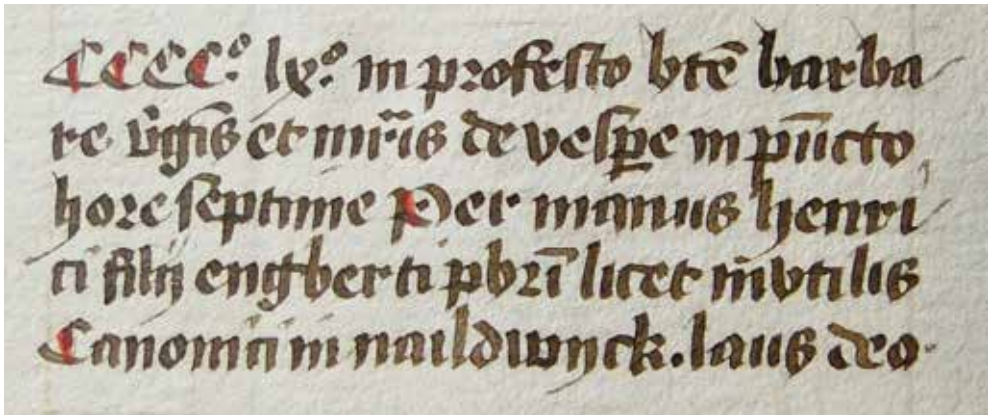 CCCCº lxº in profesto btē barba
re v̄gīs et mr̄is de vesꝑe in pūcto
hore septime Per manus henri
ci filij engberti pbrī licet īvtilis
Canonici in naildwijck. laus deo